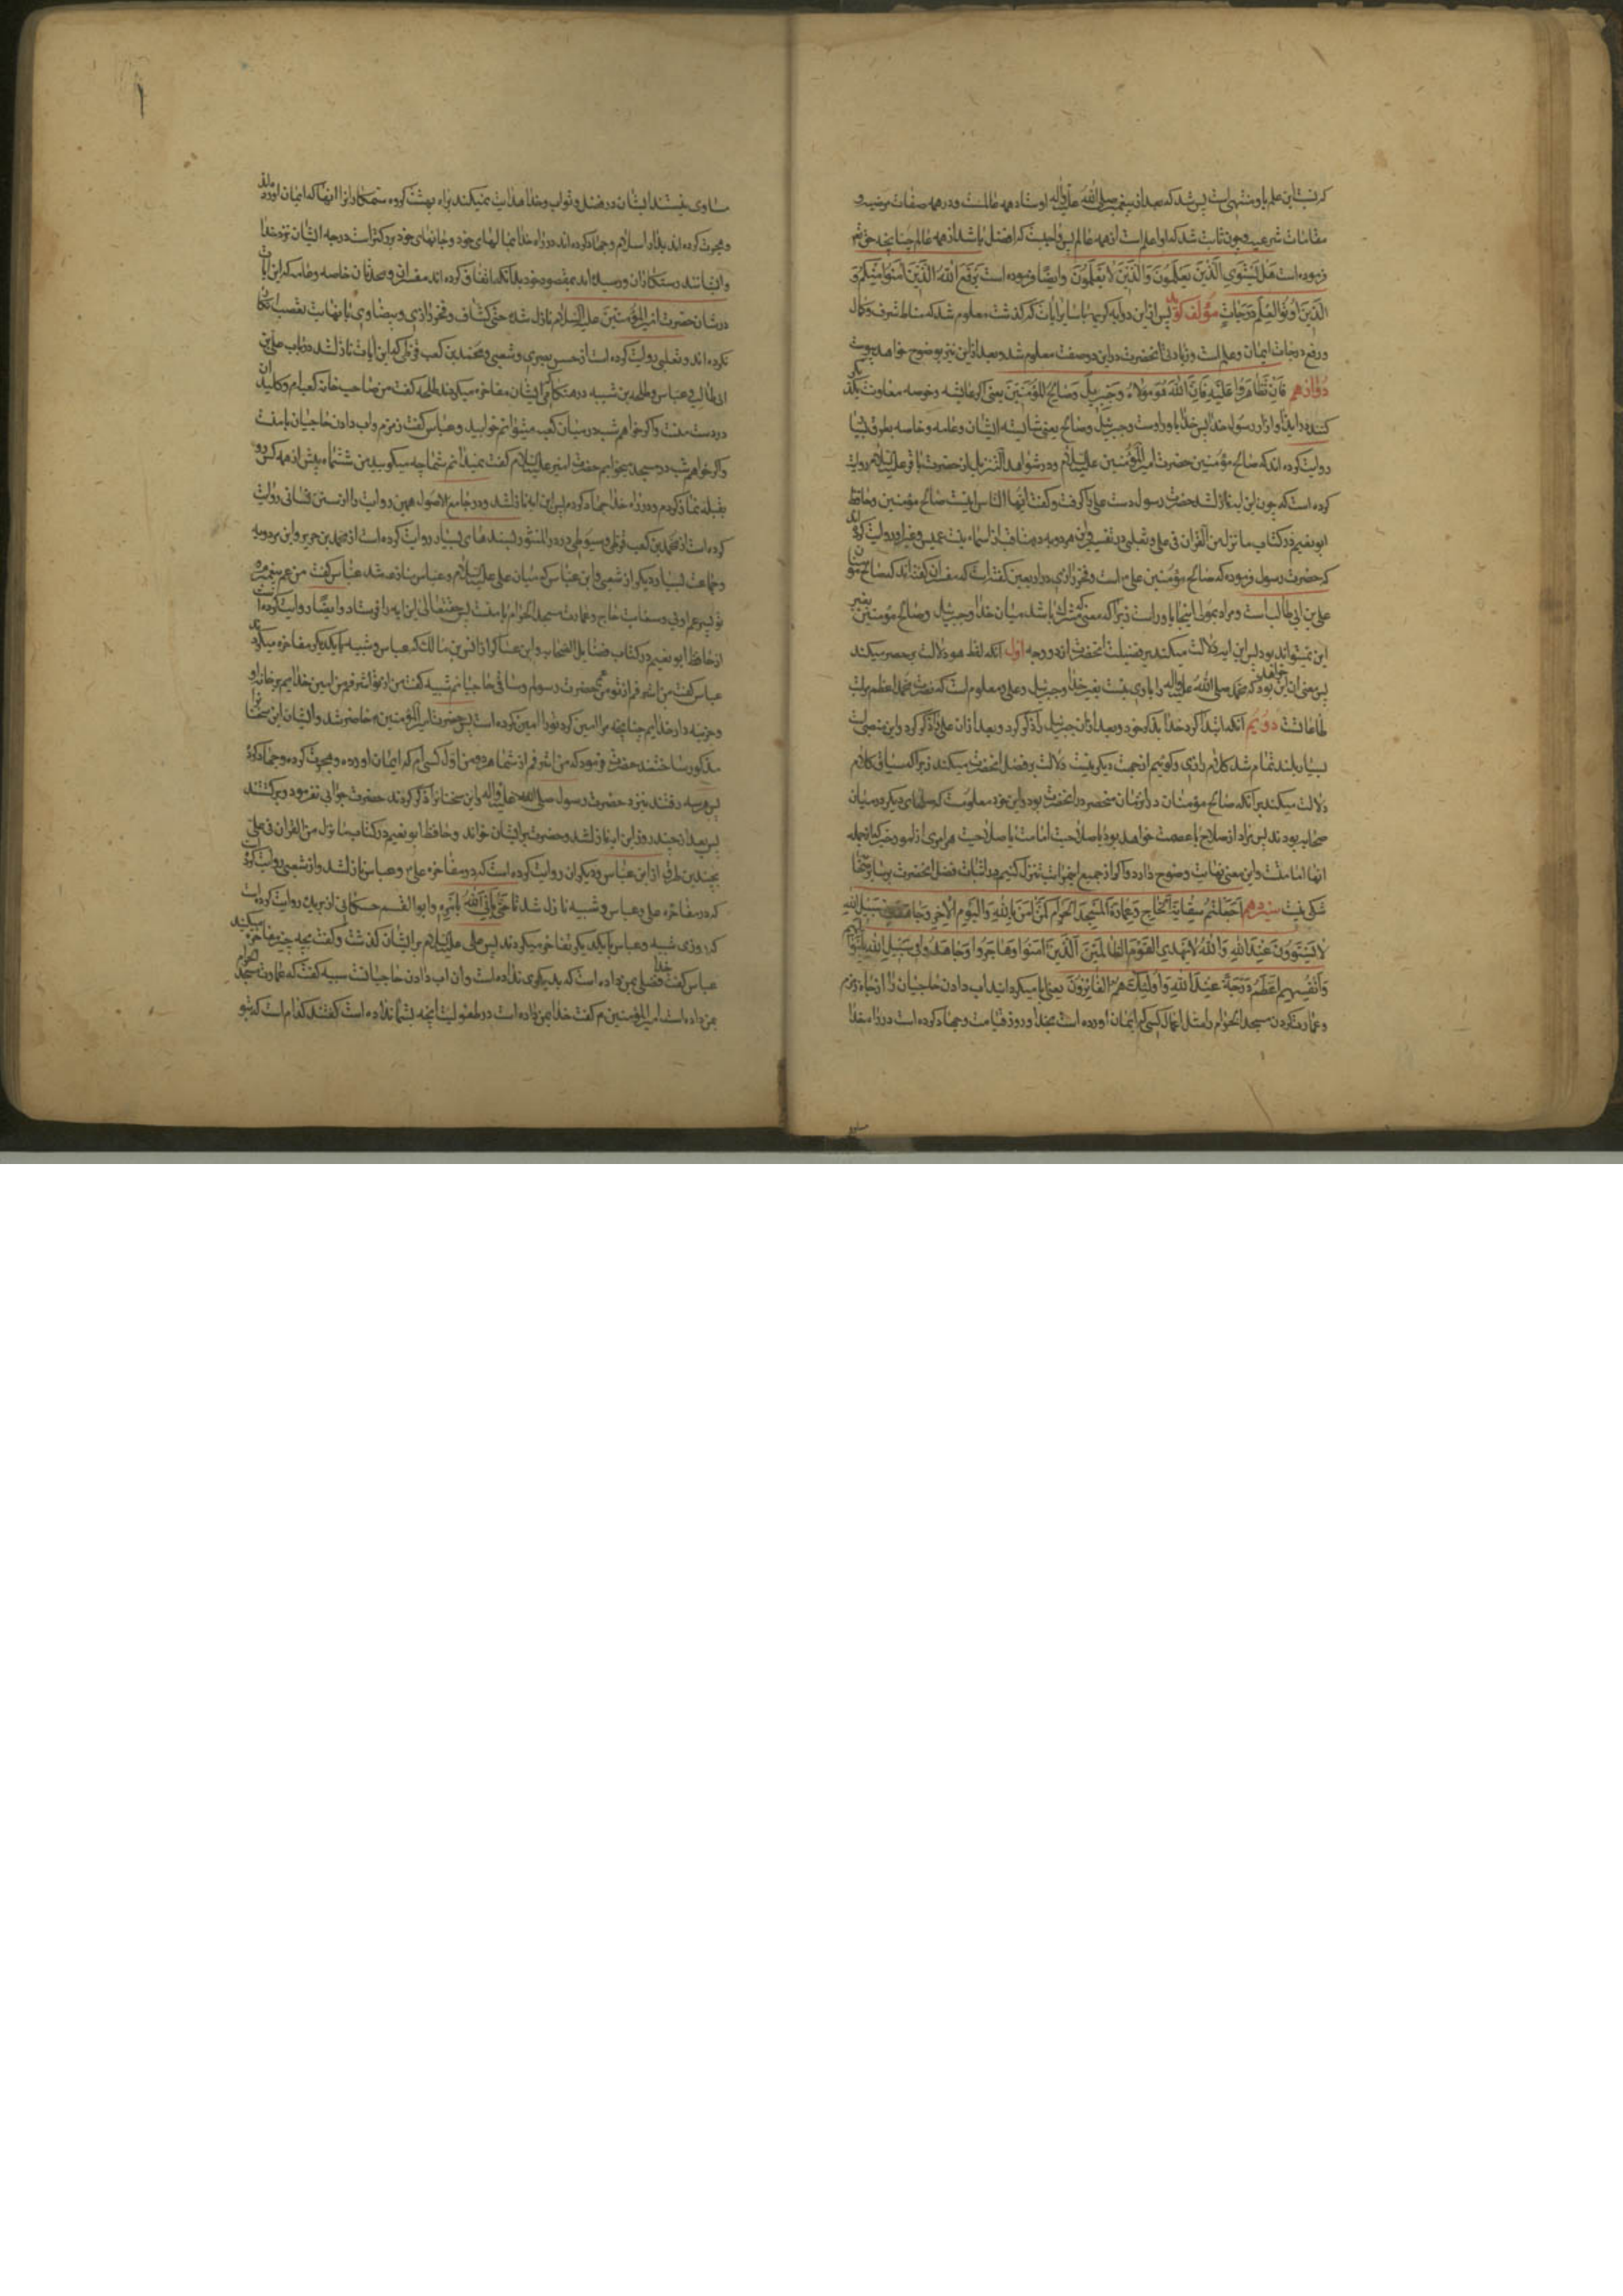 که نسبت این علم باو منتهی است پس شد که بعد از پیغمبر صلی الله علیه و آله او استاد همه عالمست و در همه صفات مرضیه و
مقامات شرعیه و چون ثابت شد که او اعلم است از همه عالم پس واجبست که افضل باشد از همه عالم چنانچه حق تعالی
فرموده است هَل یَستَوِی الَّذینَ یَعلَمونَ وَالَّذینَ لا یَعلَمونَ وایضا فرموده است یَرفَعِ اللهُ الَّذینَ آمَنوا مِنکُم وَ
الَّذینَ اُوتُوا العِلمَ دَرَجاتٍ مؤلف گوید پس از این دو آیه کریمه با سایر آیات که گذشت معلوم شد که مناط شرف و کمال
ورفع درجات ایمان وعلم است وزیادتی آنحضرت در این دو صفت معلوم شد و بعد از این نیز بوضوح خواهد پیوست
دوازدهم فَاِن تَظاهَرا عَلَیهِ فَاِنَّ اللهَ هُوَ مَولاهُ وَجِبریلُ وَصالِحُ المُؤمِنینَ یعنی اگر عایشه و حفصه معاونت یکدیگر
کنند در ایذا و آزار رسول خدا پس خدا یاور اوست وجبرئیل وصالح یعنی شایسته ایشان وعامه وخاصه بطرق بسیار
روایت کرده اند که صالح مؤمنین حضرت امیرالمؤمنین علیه السلام ودر شواهد التنزیل از حضرت باقر علیه السلام روایت
کرده است که چون این آیه نازلشد حضرت رسول دست علی را گرفت وگفت ایها الناس اینست صالح مؤمنین وحافظ
ابو نعیم در کتاب ما نزل من القرآن فی علی وثعلبی در تفسیر وابن مردویه در مناقب از اسماء بنت عمیس وغیر او روایت کرده اند
که حضرت رسول فرمود که صالح مؤمنین علی است وفخر رازی در اربعین گفته است که مفسران گفته اند که صالح مؤمنان
علی بن ابی طالب است ومراد بمولی اینجا یاور است زیرا که معنی که مشترک باشد میان خدا وجبرئیل وصالح مؤمنین بغیر
این نمیتواند بود پس این آیه دلالت میکند بر فضیلت آنحضرت از دو وجه اول آنکه لفظ هو دلالت بر حصر میکند
پس معنی آن این خواهد بود که محمد صلی الله علیه وآله را یاوری نیست بغیر خدا وجبرئیل وعلی ومعلوم است که نصرت محمد اعظم مراتب
طاعاتست دویم آنکه ابتدا کرد خدا بذکر خود وبعد از آن جبرئیل را ذکر کرد وبعد از آن علی را ذکر کرد واین منصبی است
بسیار بلند تمام شد کلام رازی وگوییم از جهت دیگر نیز دلالت بر فضل آنحضرت میکند زیرا که سیاق کلام
دلالت میکند بر آنکه صالح مؤمنان در آن زمان منحصر در آنحضرت بود واین خود معلومست که صلحای دیگر در میان
صحابه بودند پس مراد از صلاح یا عصمت خواهد بود یا صلاحیت امامت یا صلاحیت هر امری از امور خیر که از جمله
آنها امامتست واین معنی نهایت وضوح دارد واگر از جمیع این مراتب تنزل کنیم در اثبات فضل آنحضرت بر سایر صحابه
شکی نیست سیزدهم اَجَعَلتُم سِقایَةَ الحاجِّ وَعِمارَةَ المَسجِدِ الحَرامِ کَمَن آمَنَ بِاللهِ وَالیَومِ الآخِرِ وَجاهَدَ فی سَبیلِ اللهِ
لا یَستَوونَ عِندَ اللهِ وَاللهُ لا یَهدِی القَومَ الظّالِمینَ اَلَّذینَ آمَنوا وَهاجَروا وَجاهَدوا فی سَبیلِ اللهِ بِاَموالِهِم
وَاَنفُسِهِم اَعظَمُ دَرَجَةً عِندَ اللهِ وَاُولئِکَ هُمُ الفائِزونَ یعنی ایا میگردانید آب دادن حاجیان را از چاه زمزم
وعمارت کردن مسجد الحرام را مثل اعمال کسی که ایمان آورده است بخدا وروز قیامت وجهاد کرده است در راه خدا
مساوی
مساوی نیستند ایشان در فضل وثواب وخدا هدایت نمیکند براه بهشت گروه ستمکاران را آنها که ایمان آورده اند
وهجرت کرده اند بدار اسلام وجهاد کرده اند در راه خدا بمالهای خود وجانهای خود بزرگتر است درجه ایشان نزد خدا
وایشانند رستگاران ورسیده اند بمقصود خود بدانکه اتفاق کرده اند مفسران ومحدثان خاصه وعامه که این آیات
در شان حضرت امیرالمؤمنین علیه السلام نازل شده حتی کشاف وفخر رازی وبیضاوی با نهایت تعصب انکار
نکرده اند وثعلبی روایت کرده است از حسن بصری وشعبی ومحمد بن کعب قرظی که این آیات نازل شد در باب علی بن
ابی طالب وعباس وطلحه بن شیبه در هنگامی که ایشان مفاخره میکردند طلحه گفت من صاحب خانه کعبه ام وکلید آن
در دست منست واگر خواهم شب در میان کعبه میتوانم خوابید وعباس گفت زمزم وآب دادن حاجیان با منست
واگر خواهم شب در مسجد بخوابم حضرت امیر علیه السلام گفت نمیدانم شما چه میگویید من ششماه پیش از همه کس رو
بقبله نماز کردم ودر راه خدا جهاد کردم پس این آیه نازلشد ودر جامع الاصول همین روایت را از سنن نسائی روایت
کرده است از محمد بن کعب قرظی وسیوطی در در المنثور بسندهای بسیار روایت کرده است از محمد بن جریر وابن مردویه
وجماعت بسیار دیگر از شعبی وابن عباس که میان علی علیه السلام وعباس منازعه شد عباس گفت من عم پیغمبرم
تو پسر عم اویی وسقایت حاج وعمارت مسجد الحرام با منست پس حق تعالی این آیه را فرستاد وایضا روایت کرده است
از حافظ ابو نعیم در کتاب فضایل الصحابه وابن عساکر از انس بن مالک که عباس وشیبه با یکدیگر مفاخره میکردند
عباس گفت من اشرفم از تو من عم حضرت رسولم وساقی حاجیانم شیبه گفت من از تو اشرفم من امین خدایم بر خانه او
وخزینه دار خدایم چنانچه مرا امین کرد تو را امین نکرده است پس حضرت امیرالمؤمنین حاضر شد وایشان این سخنان را
مذکور ساختند حضرت فرمود که من اشرفم از شما هر دو من اول کسی ام که ایمان آورده وهجرت کرده وجهاد کرده
پس هر سه رفتند نزد حضرت رسول صلی الله علیه وآله واین سخنان را ذکر کردند حضرت جوابی نفرمود وبرگشتند
پس بعد از چند روز این آیه نازلشد وحضرت بر ایشان خواند وحافظ ابو نعیم در کتاب ما نزل من القرآن فی علی
بچندین طرق از ابن عباس ودیگران روایت کرده است که در مفاخره علی وعباس نازلشد واز شعبی روایت کرده است
که در مفاخره علی وعباس وشیبه نازل شد تا حَتّی یَأتِیَ اللهُ بِاَمرِه وابو القسم حسکانی از بریده روایت کرده است
که روزی شیبه وعباس با یکدیگر تفاخر میکردند پس علی علیه السلام بر ایشان گذشت وگفت بچه چیز مفاخره میکنید
عباس گفت خدا فضلی بمن داده است که بدیگری نداده است وآن آب دادن حاجیانست شیبه گفت که عمارت مسجد الحرام
بمن داده است امیرالمؤمنین گفت خدا بمن داده است در طفولیت آنچه بشما نداده است گفتند کدام است که بتو